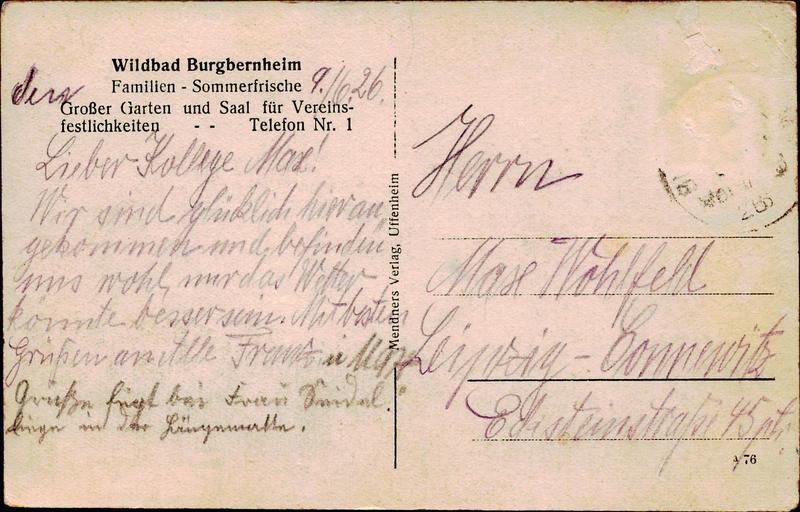 Wildbad Burgbernheim
Familien - Sommerfrische
den 9./6.26.
Großer Garten und Saal für Vereins-
festlichkeiten - - Telefon Nr. 1
Lieber Kollege Max!
Wir sind glücklich hier an
gekommen und befinden
uns wohl, nur das Wetter
könnte besser sein. Mit besten
Grüßen an Alle Franz u Max
Grüße fügt bei Frau Seidel
liege in der Hängematte.
Mendners Verlag, Uffenheim
Herrn
Max Wohlfeld
Leipzig - Connewitz
Ecksteinstraße 45
A 76